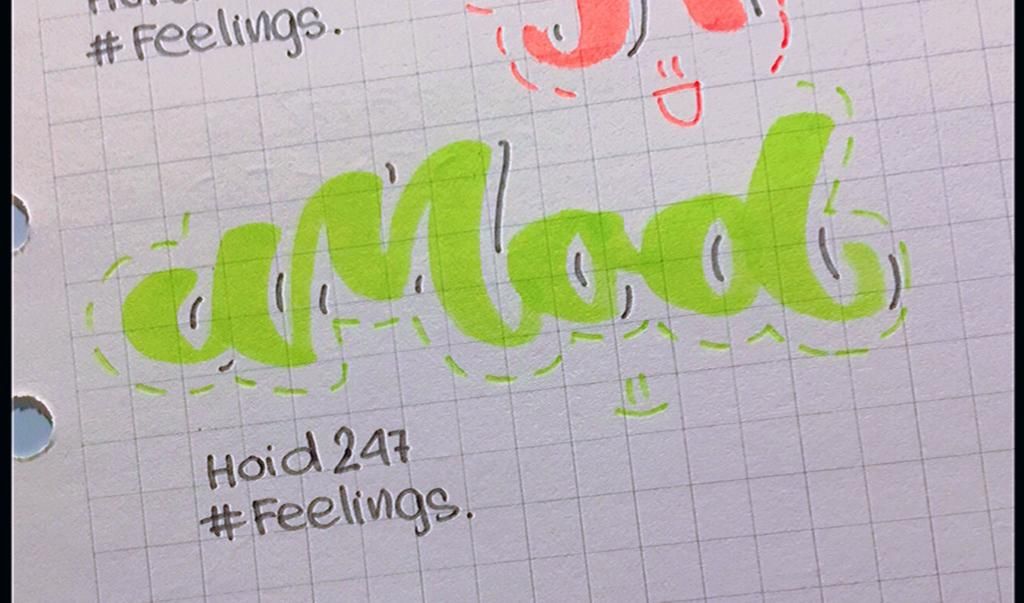 #Feelings.
Mod
Hoid 247
#Feelings.